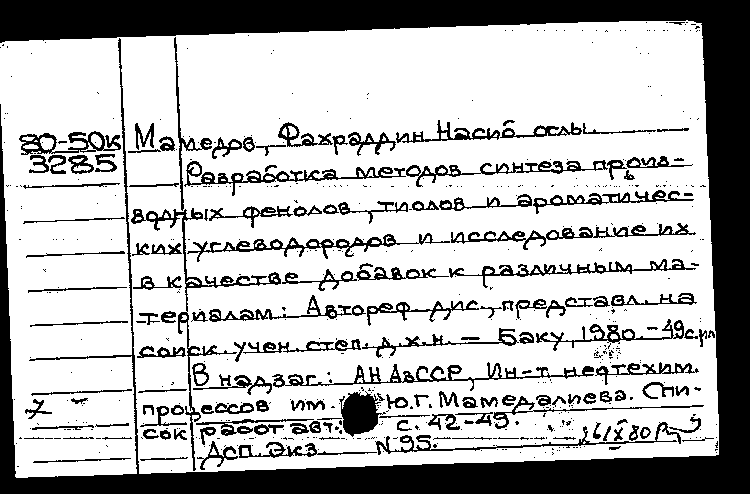 80-50к Мамедов, Фахраддин Насиб оглы.
3285
Разработка методов синтеза произ-
водных фенолов, тиолов и ароматичес-
ких углеводородов и исследование их
в качестве добавок к различным ма-
териалам: Автореф. дис., представл. на
соиск. учен. степ. д.х.н. — Баку, 1980. - 49с.
В надзаг.: АН АзССР, Ин-т нефтехим.
процессов им. Ю.Г. Мамедалиева. Спи-
сок работ авт.: с. 42-49.
Дсп. Экз. N 95.